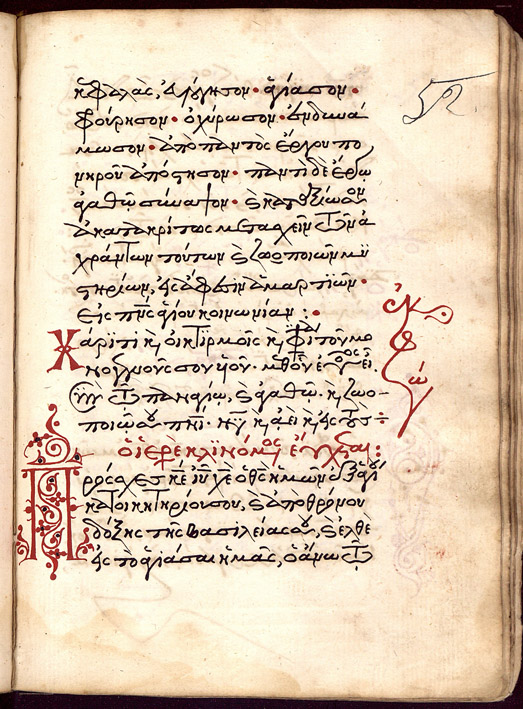 κεφαλὰς, εὐλόγησον· ἁγίασον·
φρούρησον· ὀχύρωσον· ἐνδυνά
μωσον· ἀπὸ παντὸς ἔργου πο
νηροῦ ἀπόστησον· παντὶ δὲ ἔργῳ
ἀγαθῷ σύναψον· καὶ καταξίωσον
ἀκατακρίτως μετασχεῖν τῶν ἀ
χράντων τούτων καὶ ζωοποιῶν μυ
στηρίων, εἰς ἄφεσιν ἁμαρτιῶν·
εἰς πνς ἁγίου κοινωνίαν:·
Χάριτι κ οἰκτιρμοῖς κ φιτοῦ μο
νογενοῦς σου υἱοῦ· μεθ' οὗ εὐτὸς εἶ.
σὺν τῷ παναγίῳ, καὶ ἀγαθῷ· κ ζωο
ποιῷ σου πνι· νῦν κ ἀεὶ κ εἰς τοὺς
ὁ ἱερεὺς κλινόμενος εὔχεται:
Πρόσχες κε ιυ χε ὁ θς ἡμῶν ἐξ ἁγί
κατοικητηρίου σου, καὶ ἀπὸ θρόνου
δόξης τῆς βασιλείας σου, καὶ ἐλθὲ
εἰς τὸ ἁγιάσαι ἡμᾶς, ὁ ἄνω τῷ
ἐκφώ
52